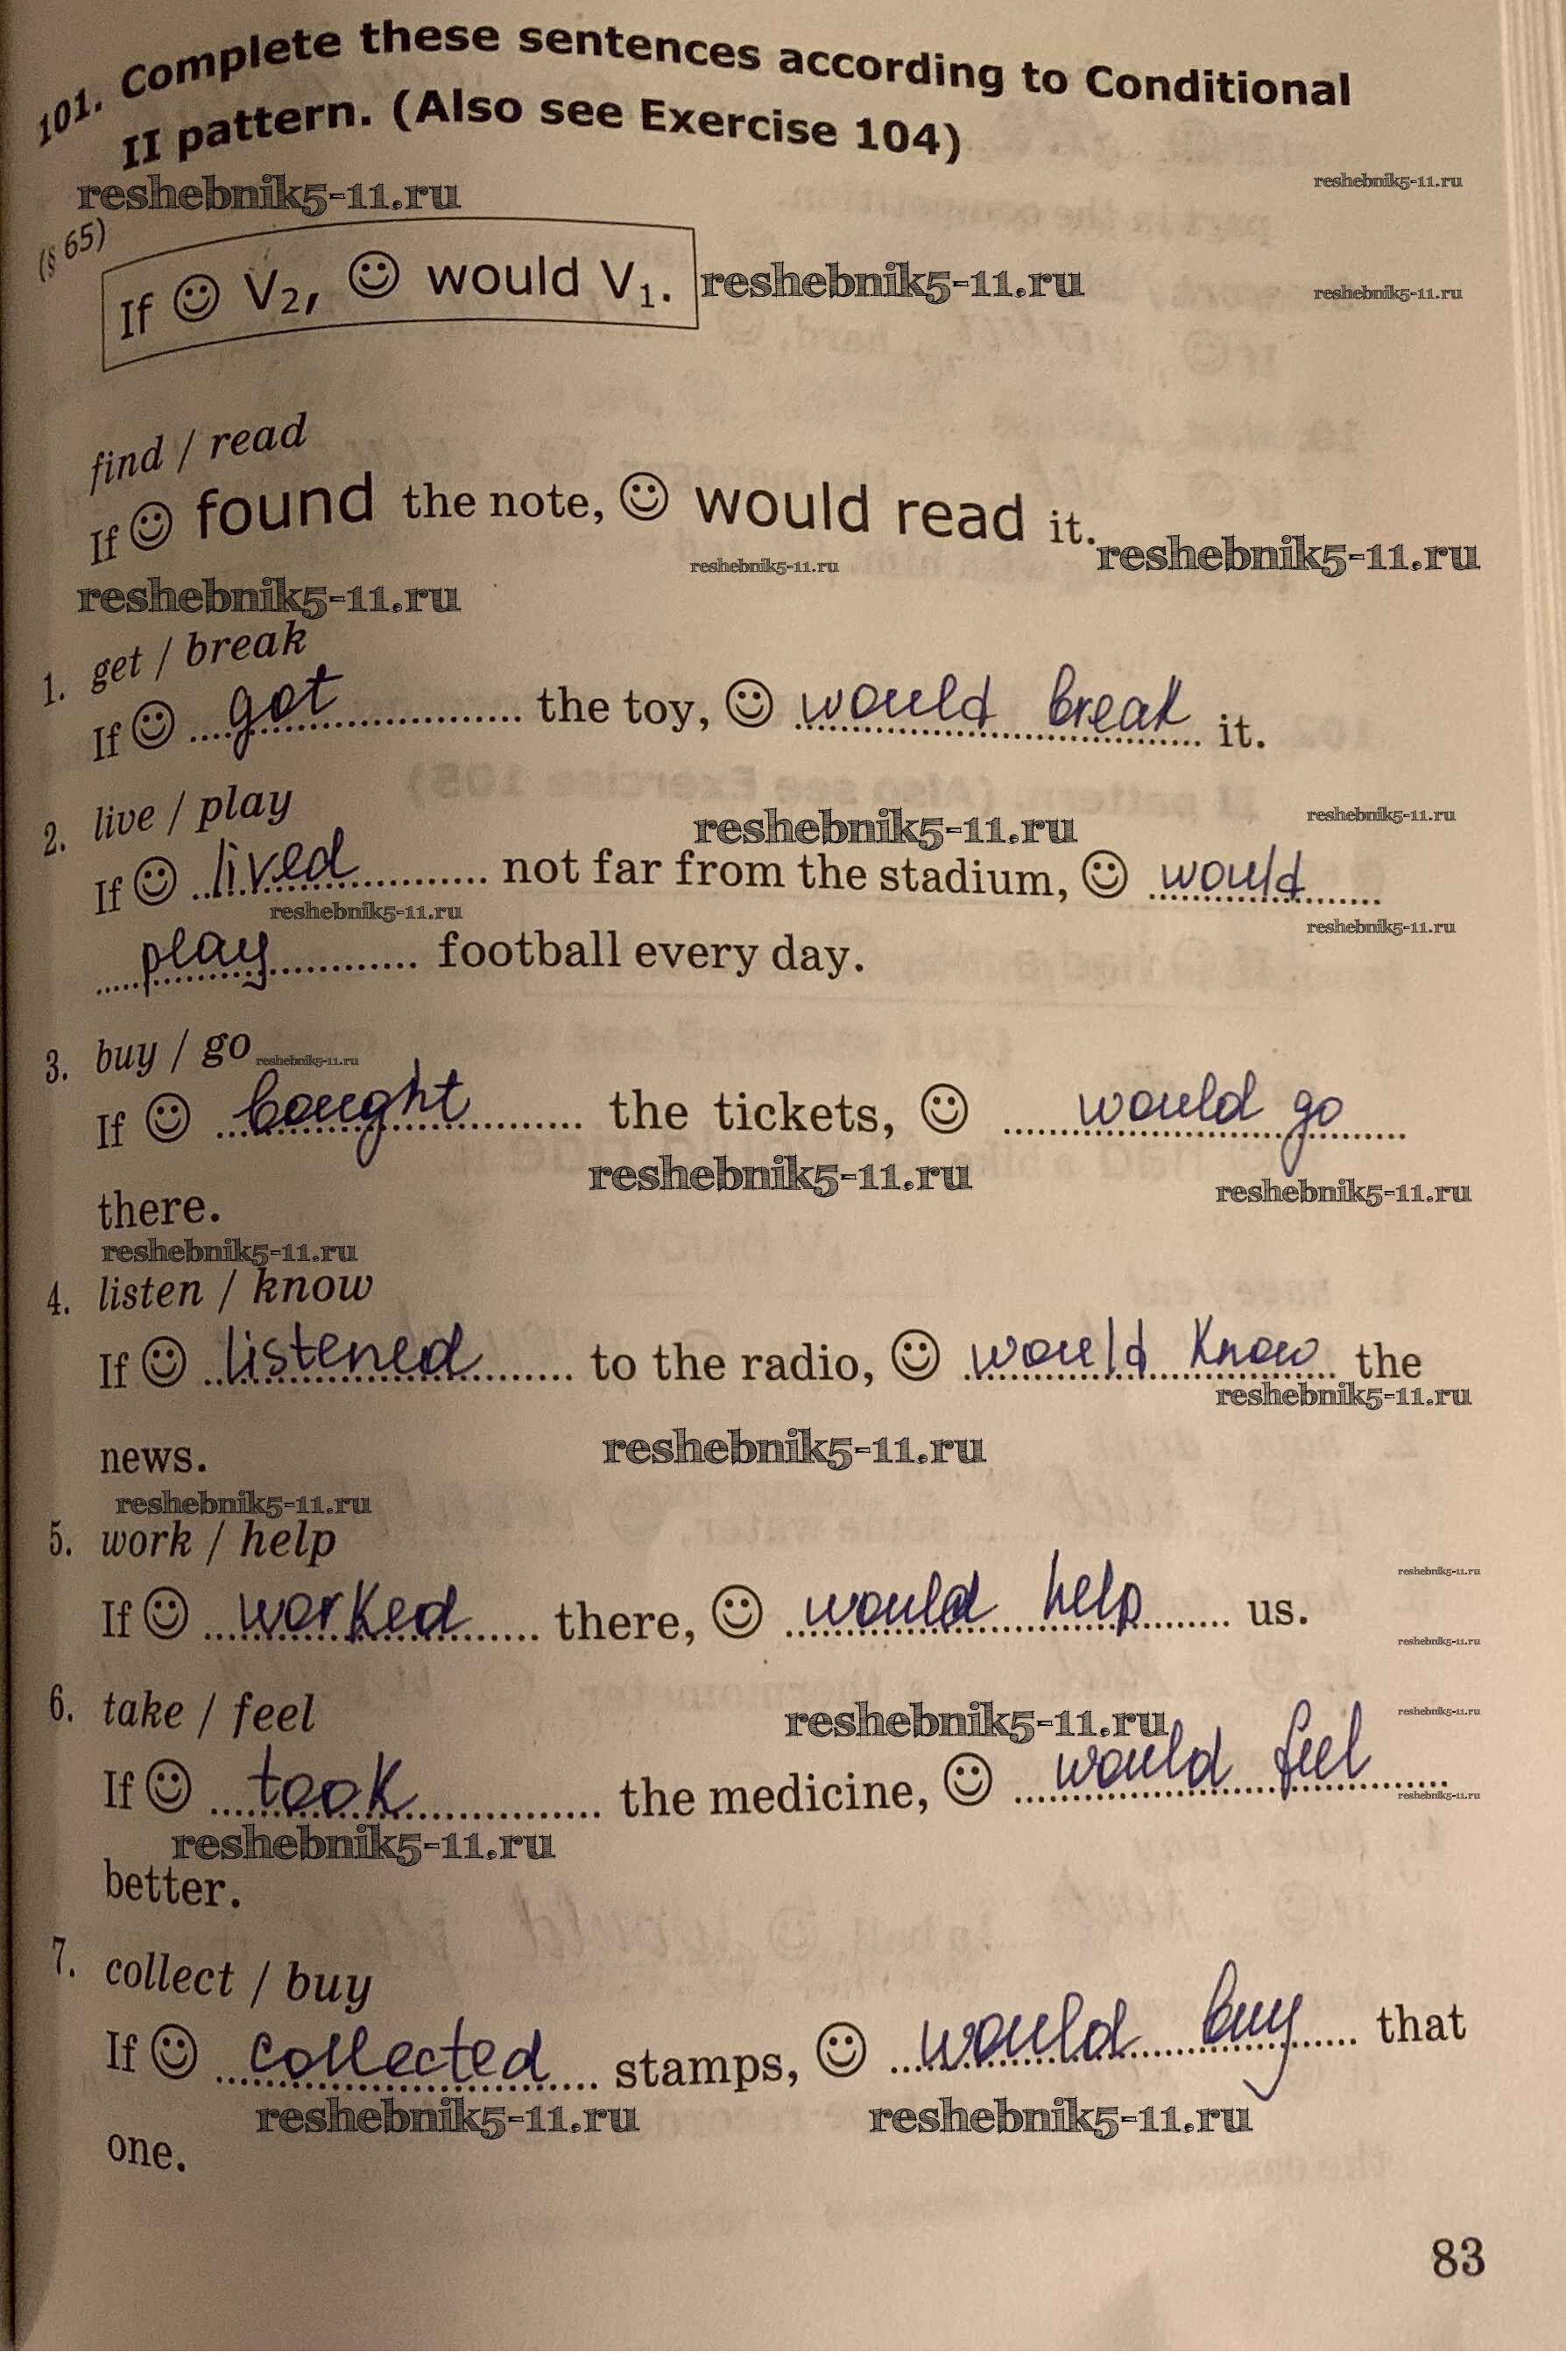 101. Complete these sentences according to Conditional
II pattern. (Also see Exercise 104)
reshebnik5-11.ru
reshebnik5-11.ru
(§ 65)
If ☺ V₂, ☺ would V₁.
reshebnik5-11.ru
reshebnik5-11.ru
find / read
If ☺ found the note, ☺ would read it.
reshebnik5-11.ru
reshebnik5-11.ru
reshebnik5-11.ru
1. get / break
If ☺ got the toy, ☺ would break it.
2. live / play
reshebnik5-11.ru
reshebnik5-11.ru
If ☺ lived not far from the stadium, ☺ would
reshebnik5-11.ru
reshebnik5-11.ru
play football every day.
3. buy / go
reshebnik5-11.ru
If ☺ bought the tickets, ☺ would go
reshebnik5-11.ru
reshebnik5-11.ru
there.
reshebnik5-11.ru
4. listen / know
If ☺ listened to the radio, ☺ would know the
reshebnik5-11.ru
reshebnik5-11.ru
news.
reshebnik5-11.ru
5. work / help
reshebnik5-11.ru
If ☺ worked there, ☺ would help us.
reshebnik5-11.ru
6. take / feel
reshebnik5-11.ru
reshebnik5-11.ru
If ☺ took the medicine, ☺ would feel
reshebnik5-11.ru
reshebnik5-11.ru
better.
7. collect / buy
If ☺ collected stamps, ☺ would buy that
reshebnik5-11.ru
reshebnik5-11.ru
one.
83